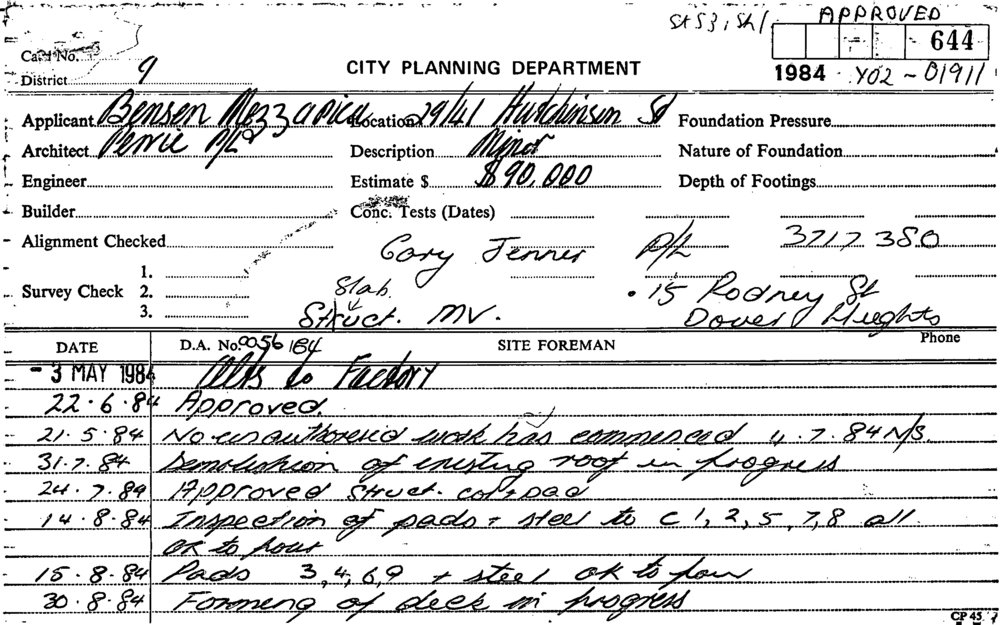 St53, Sh1 APPROVED
Card No.
644
District 9
CITY PLANNING DEPARTMENT
1984 Y02-01911
Applicant Bensen Mezzapica Location 29/41 Hutchinson St Foundation Pressure
Architect Perrie P/L Description Minor Nature of Foundation
Engineer Estimate $ $90,000 Depth of Footings
Builder Conc. Tests (Dates)
Alignment Checked Gary Jenner P/L 3717380
1.
Survey Check 2. Slab. 15 Rodney St
3. Struct. MV. Dover Heights
DATE D.A. No. 0056 184 SITE FOREMAN Phone
-3 MAY 1984 Alts to Factory
22.6.84 Approved.
21.5.84 No unauthoresid work has commenced 4.7.84 N/S.
31.7.84 Demolishion of existing roof in progress
24.7.84 Approved Struct. col+pad
14.8.84 Inspection of pads + steel to C1,2,5,7,8 all
OK to pour
15.8.84 Pads 3,4,6,9 + steel OK to pour
30.8.84 Forming of deck in progress
CP 45